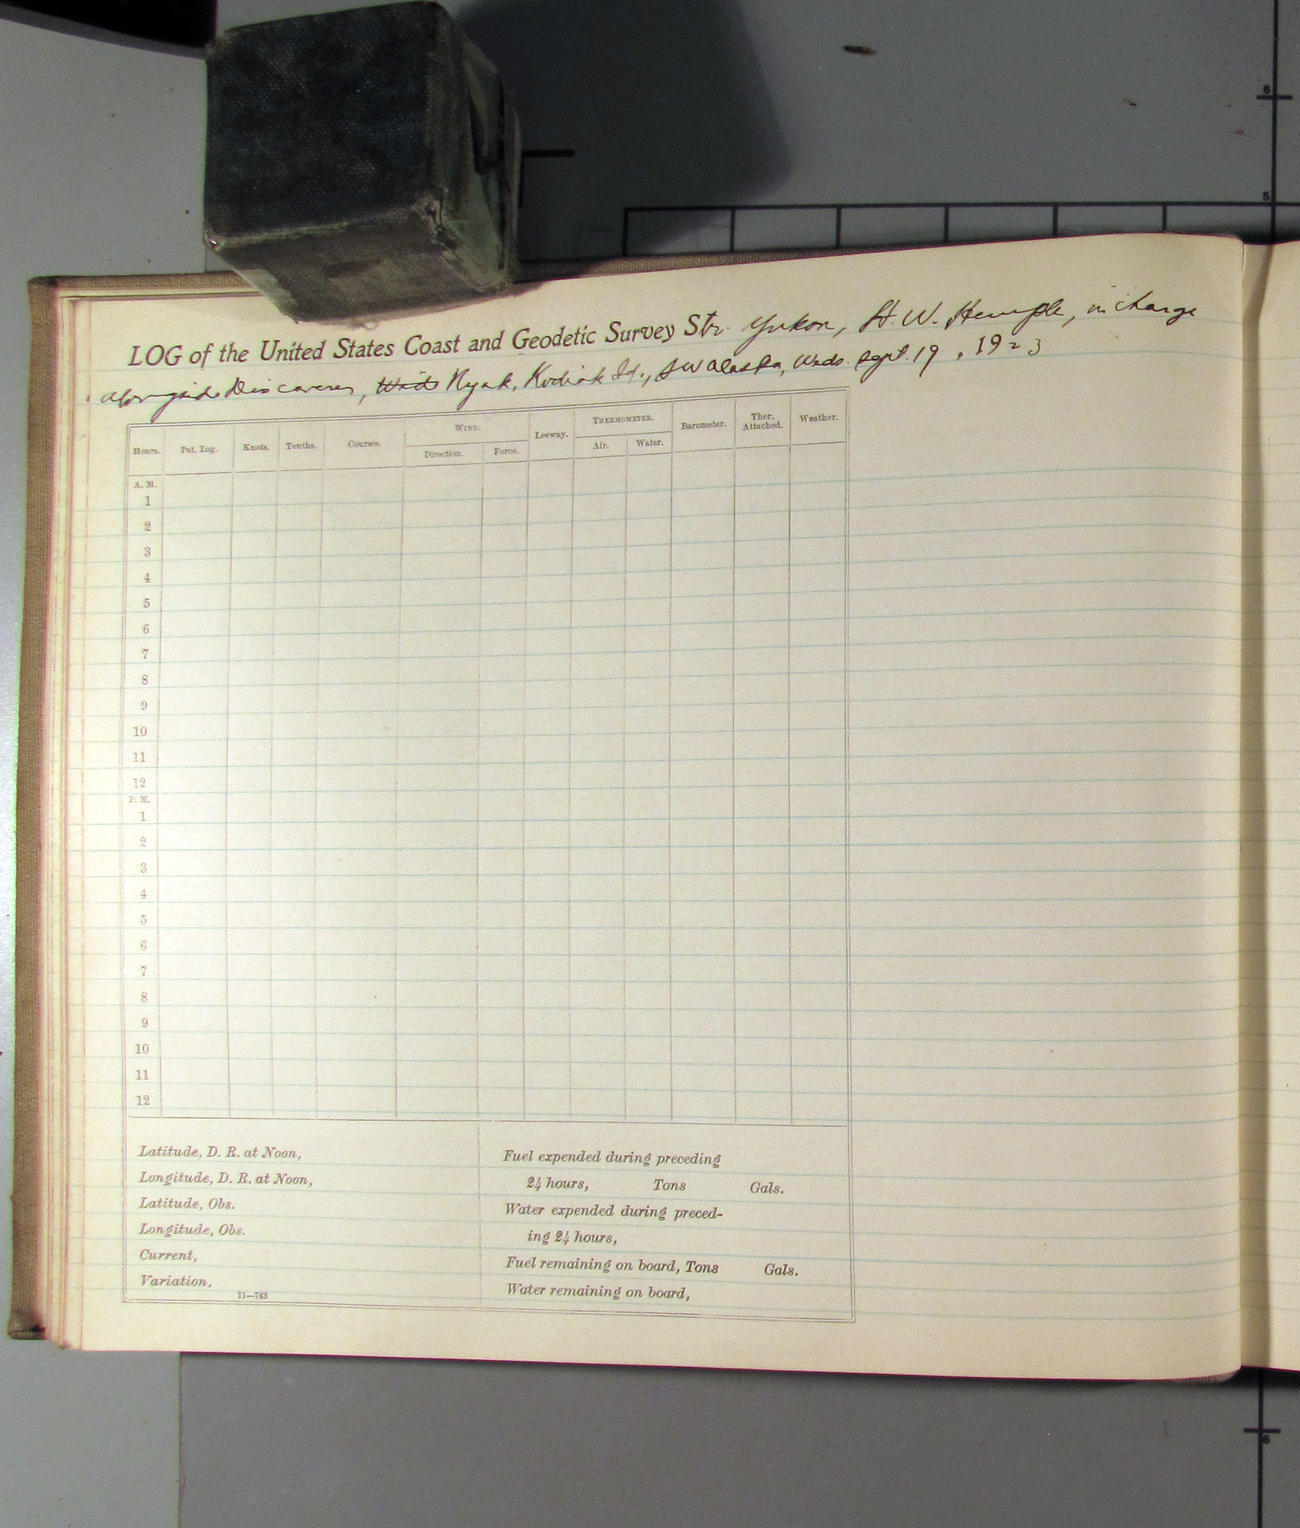 LOG of the United States Coast and Geodetic Survey Str. Yukon, H. W. Hemple, in charge
alongside Discoverer, Uyak, Kodiak Id., SW Alaska, Weds. Sept. 19, 1923
Hours. Pat. Log. Knots. Tenths. Courses. WIND. Leeway. THERMOMETER. Barometer. Ther. Attached. Weather.
Direction. Force. Air. Water.
A. M.
1
2
3
4
5
6
7
8
9
10
11
12
P. M.
1
2
3
4
5
6
7
8
9
10
11
12
Latitude, D. R. at Noon,
Longitude, D. R. at Noon,
Latitude, Obs.
Longitude, Obs.
Current,
Variation,
11—743
Fuel expended during preceding
24 hours, Tons Gals.
Water expended during preced-
ing 24 hours,
Fuel remaining on board, Tons Gals.
Water remaining on board,
6
5
6